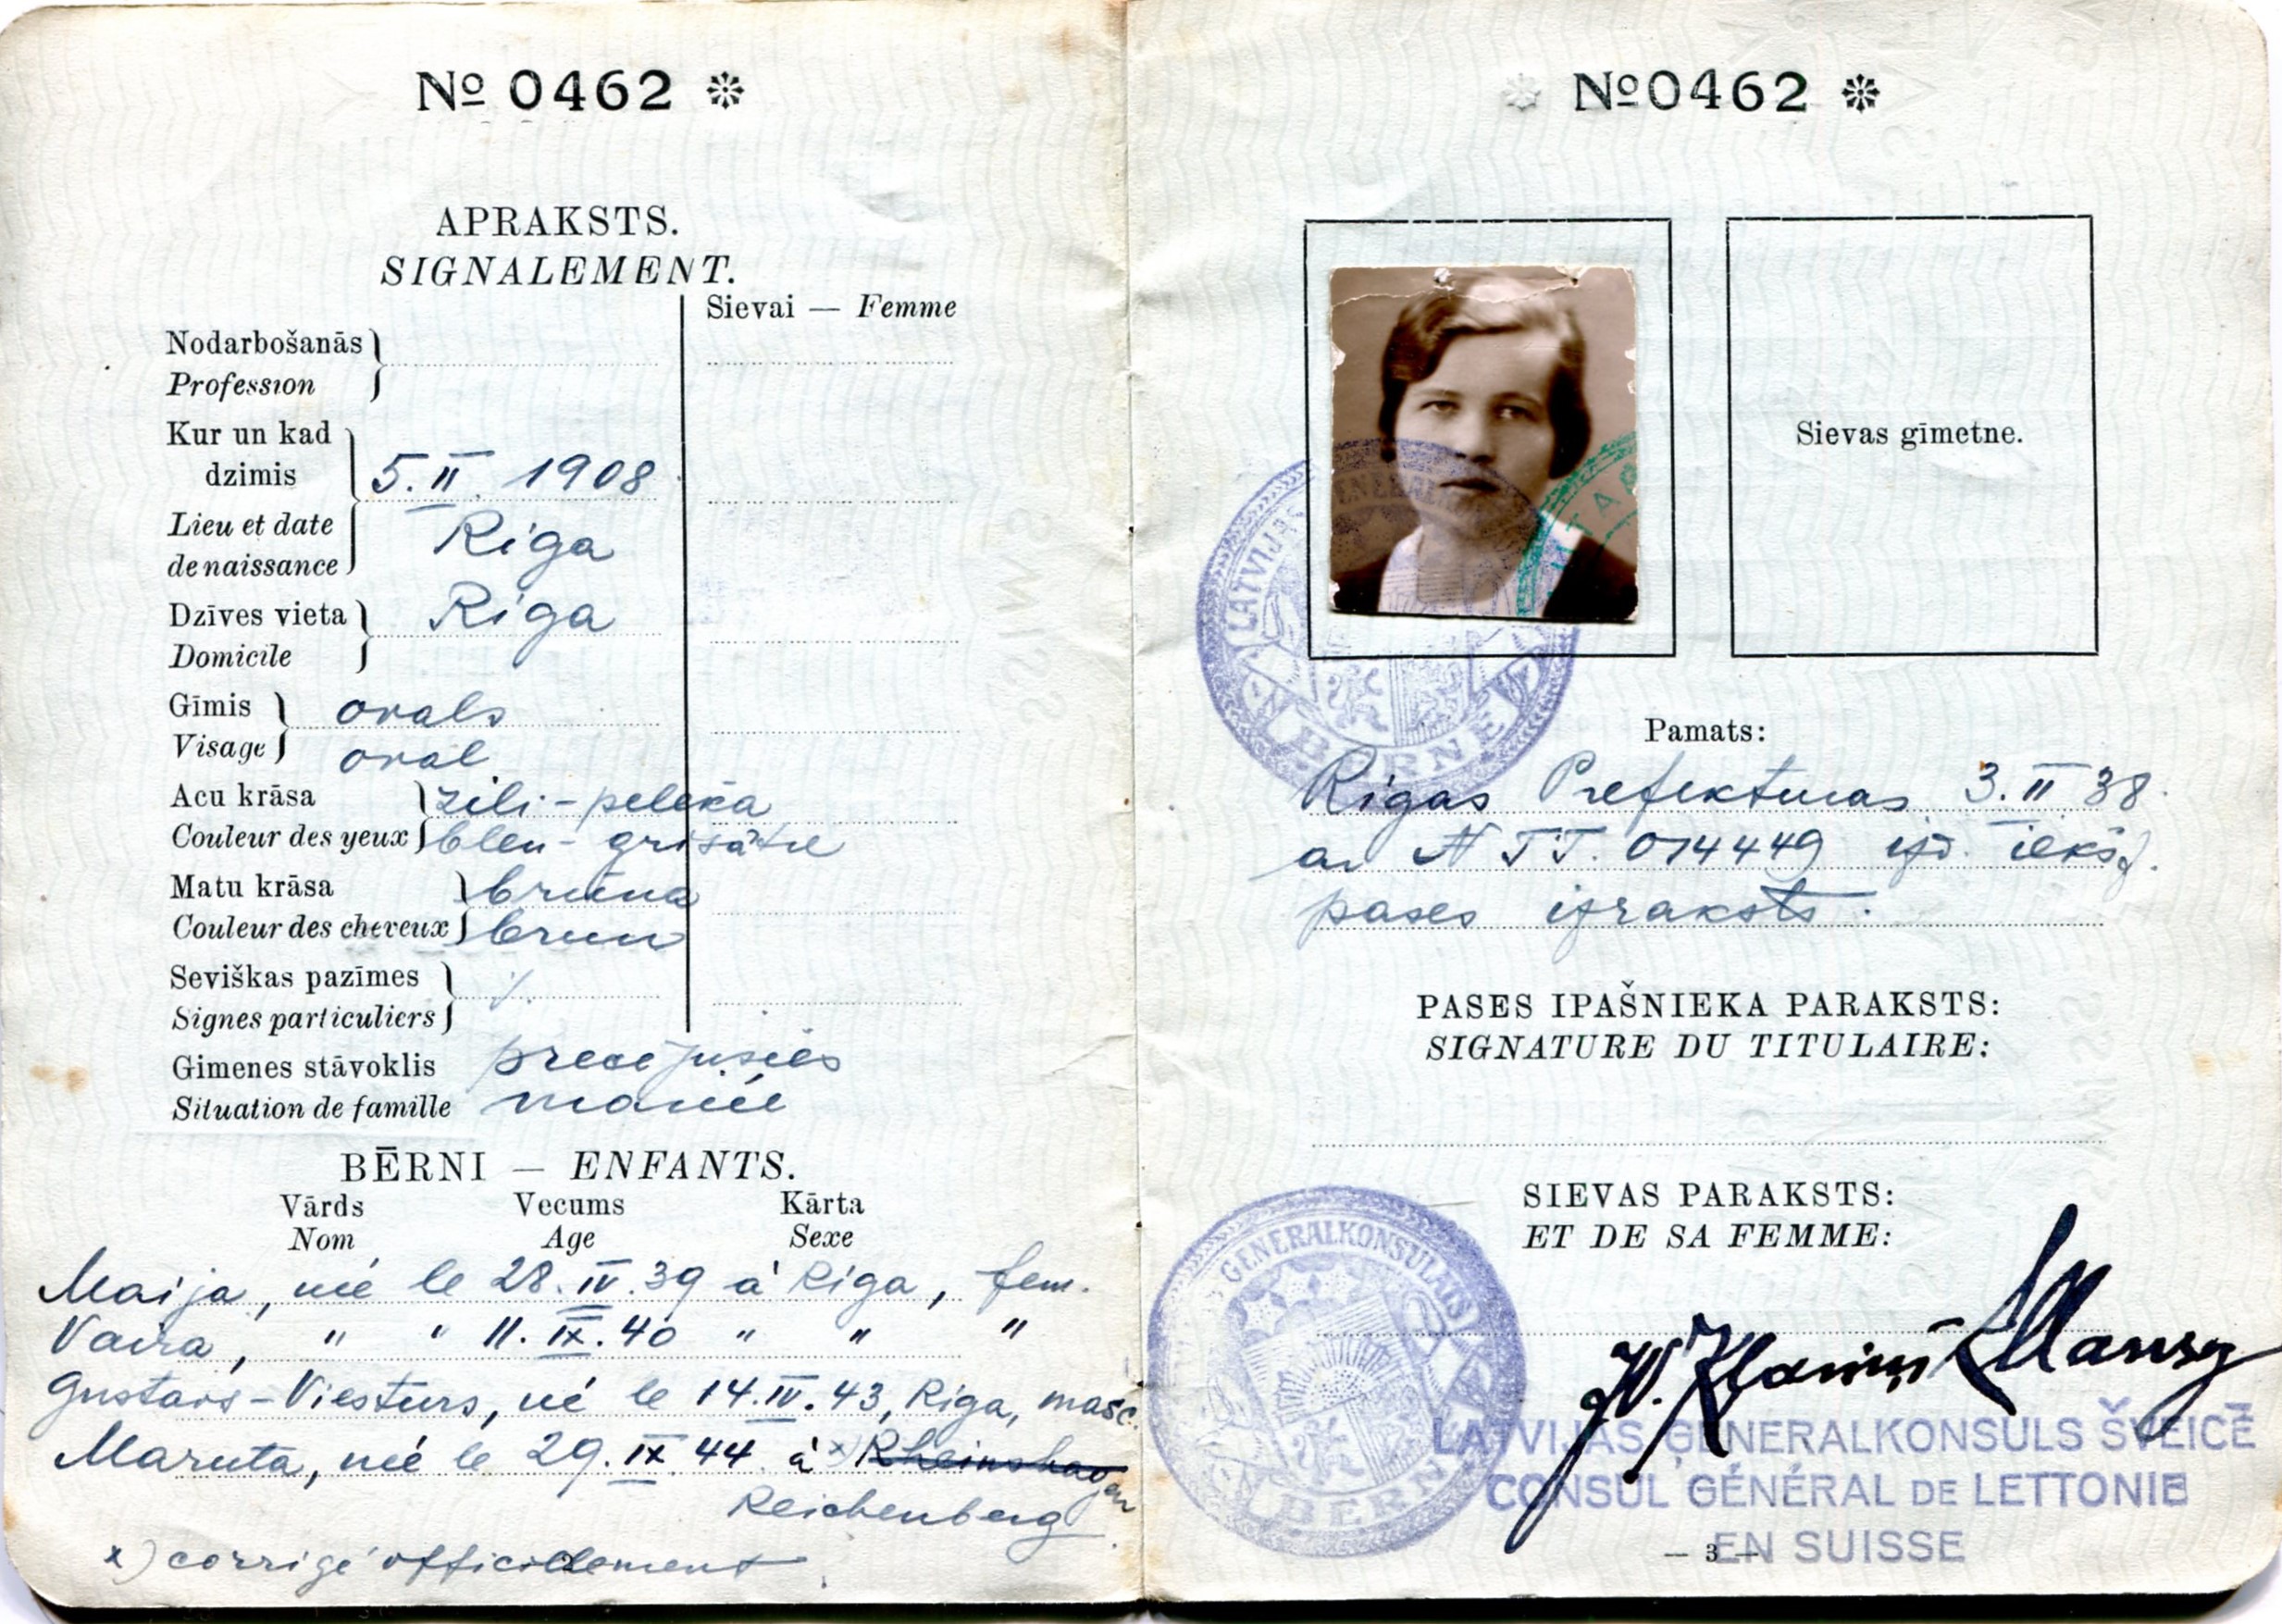 № 0462
APRAKSTS.
SIGNALEMENT.
Sievai — Femme
Nodarbošanās
Profession
Kur un kad
dzimis
5. II. 1908
Lieu et date
de naissance
Riga
Dzīves vieta
Domicile
Riga
Gīmis
ovals
Visage
oval
Acu krāsa
zili-pelēka
Couleur des yeux
bleu-grisâtre
Matu krāsa
brūna
Couleur des cheveux
brun
Seviškas pazīmes
Signes particuliers
Gimenes stāvoklis
precējusiēs
Situation de famille
mariée
BĒRNI — ENFANTS.
Vārds Vecums Kārta
Nom Age Sexe
Maija, née le 28. IV. 39 à Riga, fem.
Vaira, " " 11. IX. 40 " " "
Gustavs-Viesturs, né le 14. IV. 43, Riga, masc.
Maruta, née le 29. IX 44 à x)
Reichenberg
x) corrigé officiellement
№ 0462
Sievas gīmetne.
LATVIJAS ĢENERALKONSULATS
BERNE
Pamats:
Rigas Prefekturas 3. II 38.
ar № TT. 014449 izd. iekšz.
pases izraksts.
PASES IPAŠNIEKA PARAKSTS:
SIGNATURE DU TITULAIRE:
SIEVAS PARAKSTS:
ET DE SA FEMME:
ĢENERALKONSULATS
BERNE
LATVIJAS ĢENERALKONSULS ŠVEICĒ
CONSUL GÉNÉRAL DE LETTONIE
EN SUISSE
— 3 —